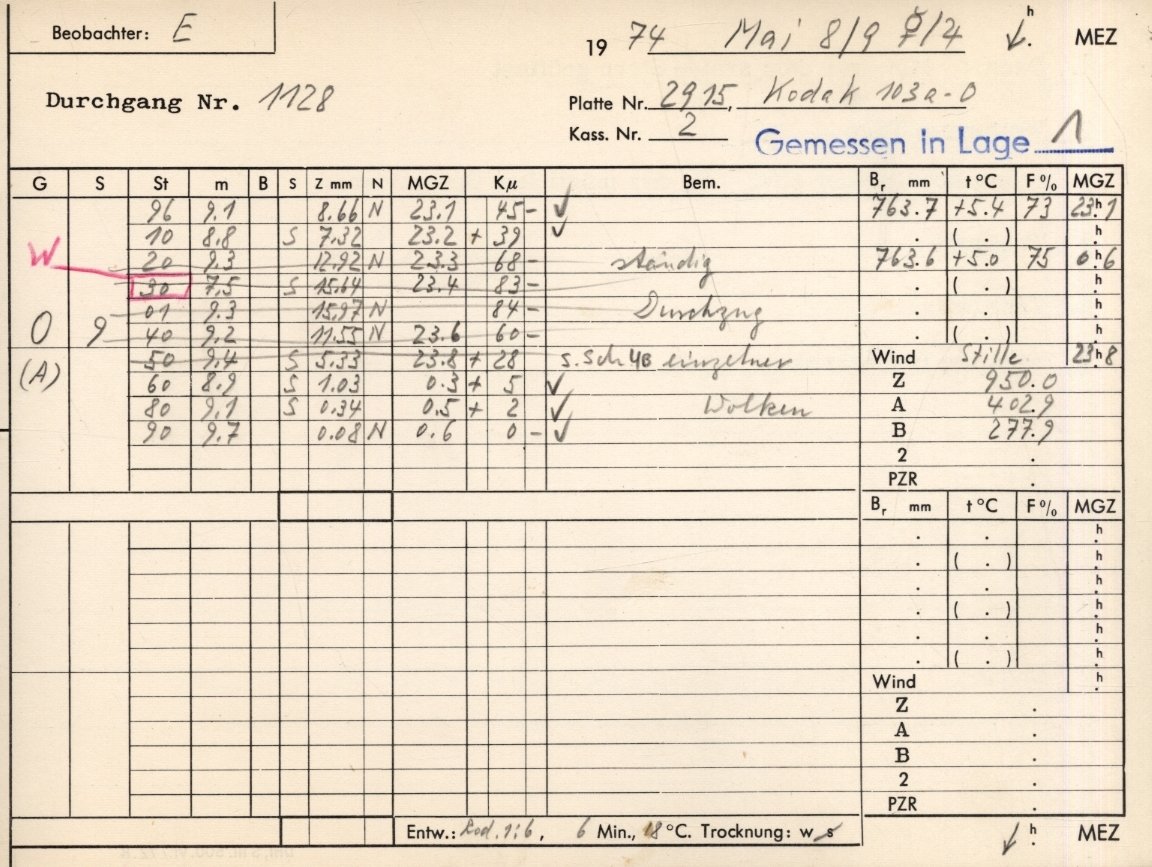 Beobachter: E
19 74 Mai 8/9 h MEZ
Durchgang Nr. 1128
Platte Nr. 2915, Kodak 103a-O
Kass. Nr. 2
Gemessen in Lage 1
G S St m B S Z mm N MGZ Kμ Bem. Br mm t °C F % MGZ
96 9.1 8.66 N 23.1 45 - 763.7 +5.4 73 23h1
10 8.8 S 7.32 23.2 + 39 ( . ) h
W 20 9.3 12.92 N 23.3 68 - ständig 763.6 +5.0 75 0h6
30 7.5 S 15.64 23.4 83 - ( . ) h
O 9 01 9.3 15.97 N 84 - Durchzug h
40 9.2 11.55 N 23.6 60 - ( . ) h
(A) 50 9.4 S 5.33 23.8 + 28 einzelner Wind Stille 23h8
60 8.9 S 1.03 0.3 + 5 Z 950.0
80 9.1 S 0.34 0.5 + 2 Wolken A 402.9
90 9.7 0.08 N 0.6 0 - B 277.9
2 .
PZR .
Br mm t °C F % MGZ
. . h
. ( . ) h
. . h
. ( . ) h
. . h
. ( . ) h
Wind h
Z .
A .
B .
2 .
PZR .
Entw.: Rod. 1:6, 6 Min., 18 °C. Trocknung: w s
h MEZ